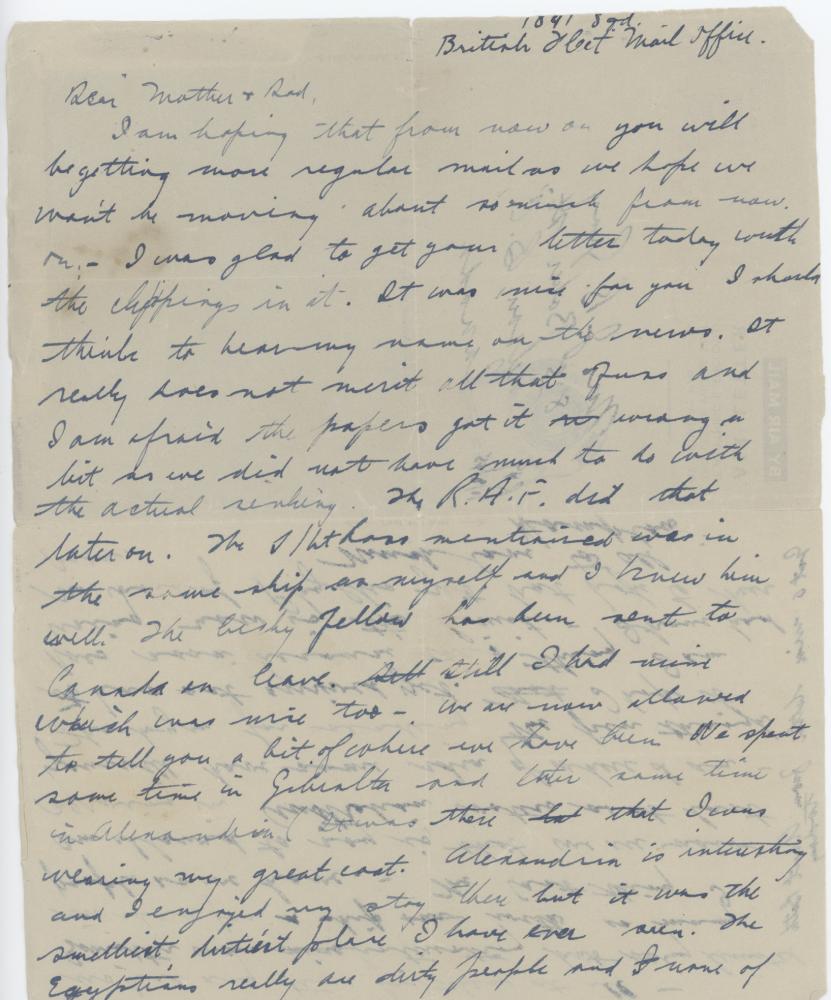 1841 Sqd.
British Fleet Mail Office.
Dear Mother & Dad,
I am hoping that from now on you will
be getting more regular mail as we hope we
won't be moving about so much from now
on. - I was glad to get your letter today with
the clippings in it. It was nice for you I should
think to hear my name on the news. It
really does not merit all that fuss and
I am afraid the papers got it wrong a
bit as we did not have much to do with
the actual sinking. The R.A.F. did that
later on. The S/Lt Ross mentioned was in
the same ship as myself and I knew him
well. The lucky fellow has been sent to
Canada on leave. Still I had mine
which was nice too - we are now allowed
to tell you a bit of where we have been We spent
some time in Gibralta and later some time
in Alexandria (It was there that I was
wearing my great coat. Alexandria is interesting
and I enjoyed my stay there but it was the
smelliest dirtiest place I have ever seen. The
Egyptians really are dirty people and I none of
BY AIR MAIL